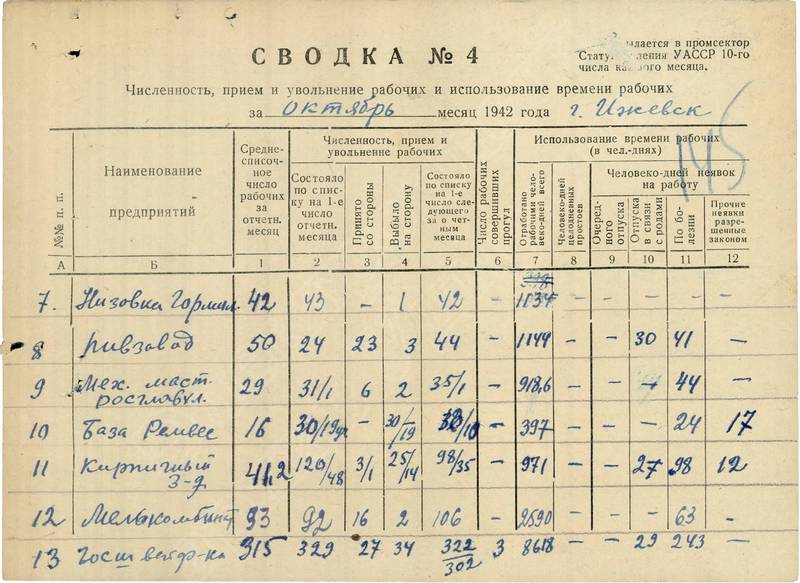 СВОДКА № 4
ылается в промсектор
Стату ления УАССР 10-го
числа ка ого месяца.
Численность, прием и увольнение рабочих и использование времени рабочих
за октябрь месяц 1942 года г. Ижевск
145
№№ п. п.
Наименование предприятий
Средне-списочное число рабочих за отчетн. месяц
Численность, прием и увольнение рабочих
Состояло по списку на 1-е число отчетн. месяца
Принято со стороны
Выбыло на сторону
Состояло по списку на 1-е число следующего за отчетным месяца
Число рабочих совершивших прогул
Использование времени рабочих (в чел.-днях)
Отработано рабочими человеко-дней всего
Человеко-дней целодневных простоев
Человеко-дней неявок на работу
Очередного отпуска
Отпуска в связи с родами
По болезни
Прочие неявки разрешенные законом
А Б 1 2 3 4 5 6 7 8 9 10 11 12
7. Низовка 42 43 – 1 42 – 1134 – – – – –
8 Пивзавод 50 24 23 3 44 – 1149 – – 30 41 –
9 Мех. маст. росглавул. 29 31/1 6 2 35/1 – 918,6 – – – 44 –
10 База 16 30/19 – 30/19 – 397 – – – 24 17
11 Кирпичный з-д 41,2 120/48 3/1 25/14 98/35 – 971 – – 27 98 12
12 Мелькомбинат 93 92 16 2 106 – 2590 – – – 63 –
13 315 329 27 34 322/302 3 8618 – – 29 243 –